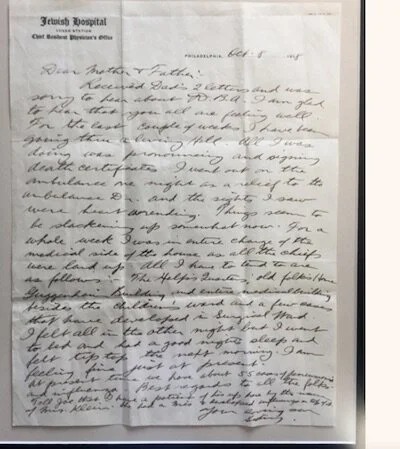 Jewish Hospital
LOGAN STATION
Chief Resident Physician's Office
PHILADELPHIA, Oct. 8 1918
Dear Mother & Father:
Received Dad's 2 letters and was
sorry to hear about R.B.A. I am glad
to hear that you all are feeling well.
For the last couple of weeks I have been
going thru a living Hell. All I was
doing was pronouncing and signing
death certificates. I went out on the
ambulance one night as a relief to the
ambulance Dr. and the sights I saw
were heart rending. Things seem to
be slackening up somewhat now. For a
whole week I was in entire charge of the
medical side of the house as all the chiefs
were laid up. All I have to tend to are
as follows: The Help's Quarters, old folks Home
Guggenheim Building, and entire medical building
besides the children's ward and a few cases
that have developed in Surgical Ward
I felt all in the other night but I went
to bed and had a good night's sleep and
felt tip top the next morning. I am
feeling fine just at present.
At present time we have about 55 cases of pneumonia
and influenza. Best regards to all the folks.
Tell Joe I have a patient of his up here by the name
of Mrs. Klein. She had a
Your loving son